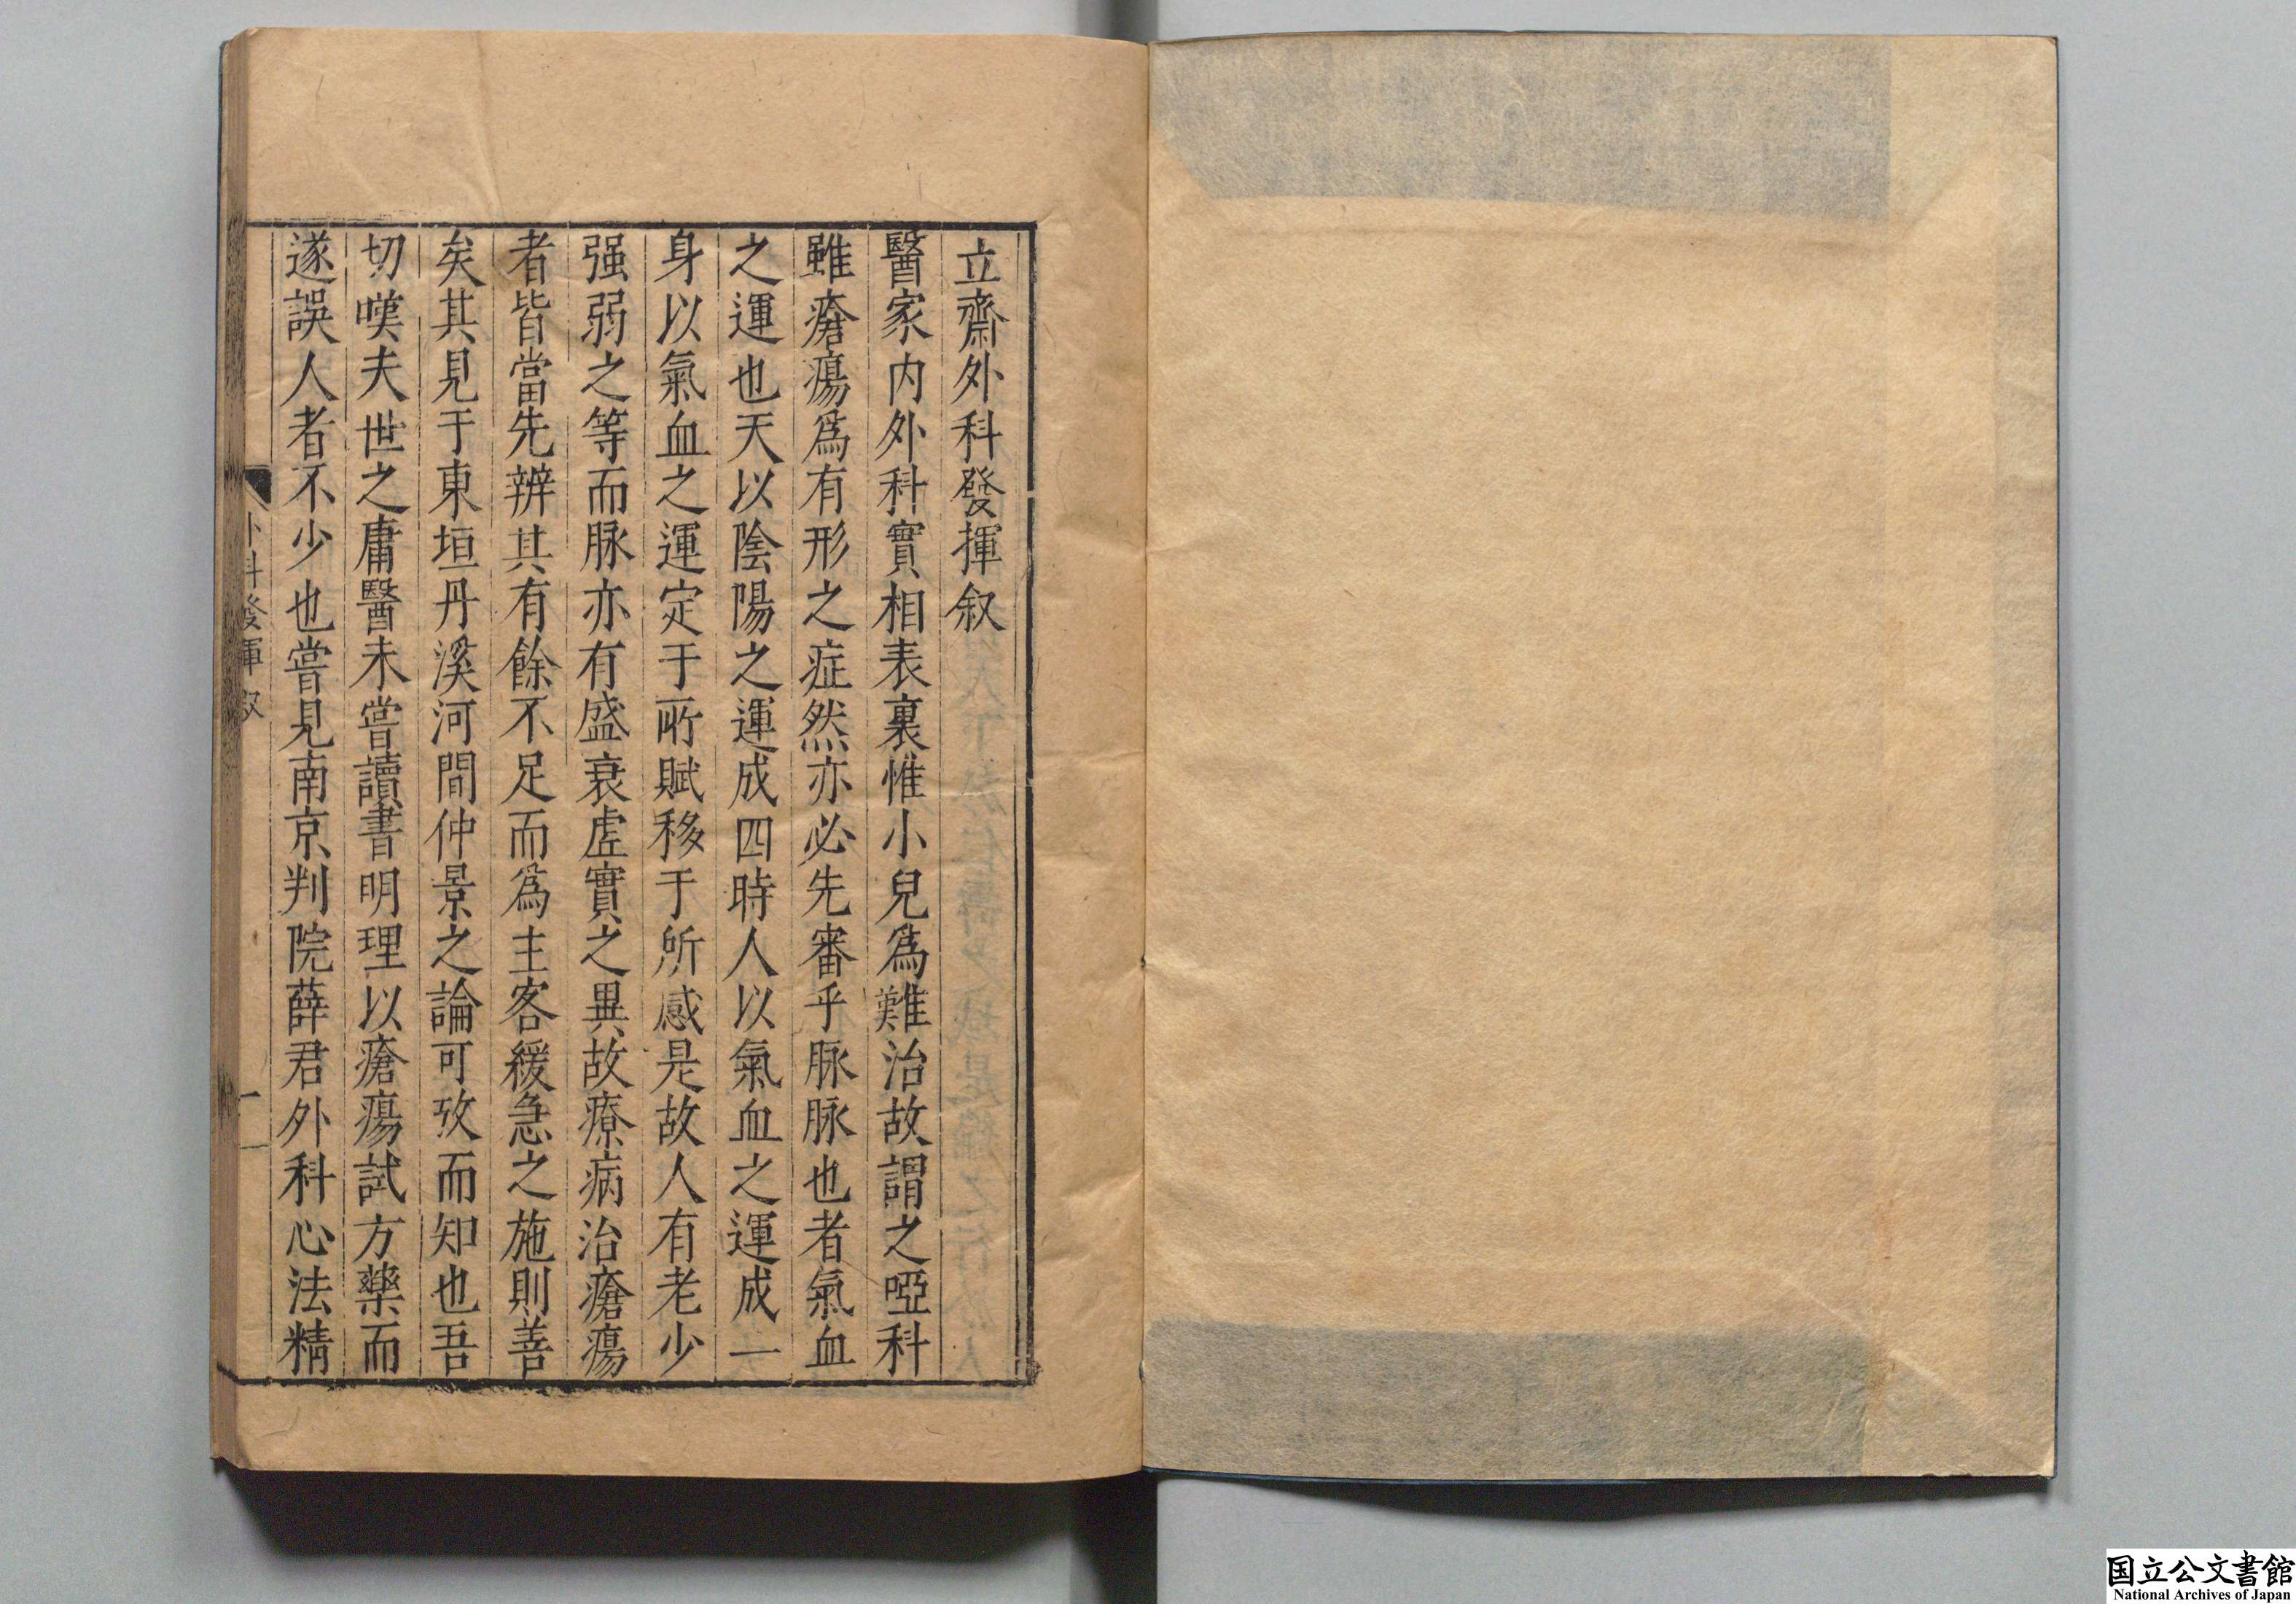 立齋外科發揮叙
醫家内外科實相表裏惟小兒爲難治故謂之啞科
雖瘡瘍爲有形之症然亦必先審乎脉脉也者氣血
之運也天以陰陽之運成四時人以氣血之運成一
身以氣血之運定于所賦移于所感是故人有老少
强弱之等而脉亦有盛衰虛實之異故療病治瘡瘍
者皆當先辨其有餘不足而爲主客緩急之施則善
矣其見于東垣丹溪河間仲景之論可攷而知也吾
切嘆夫世之庸醫未嘗讀書明理以瘡瘍試方藥而
遂誤人者不少也嘗見南京判院薛君外科心法精
外科發揮叙
一
国立公文書館
National Archives of Japan